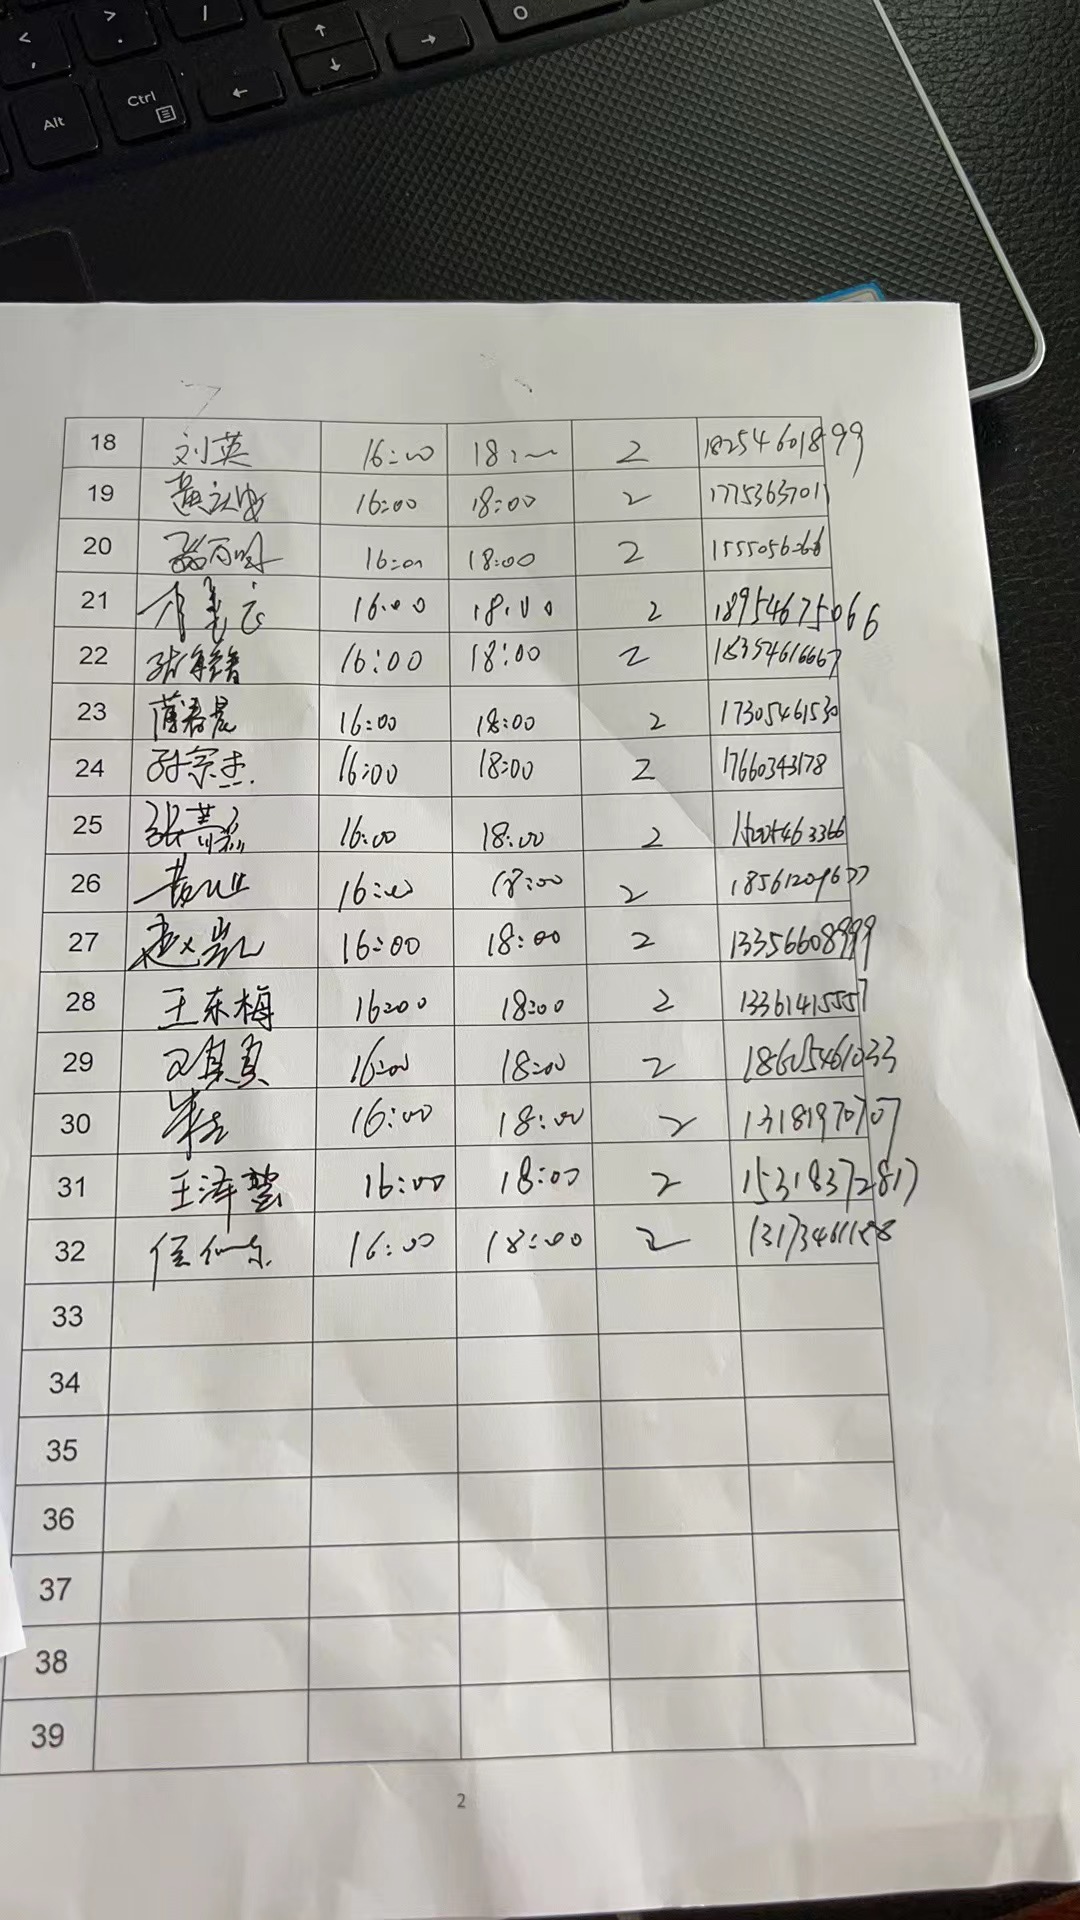 Alt
Ctrl
18 刘英 16:00 18:00 2 18254601899
19 16:00 18:00 2 17753637011
20 16:00 18:00 2
21 16:00 18:00 2 18954675066
22 16:00 18:00 2 18354616667
23 薄春晨 16:00 18:00 2 17305461530
24 孙宗杰 16:00 18:00 2 17660343178
25 16:00 18:00 2
26 16:00 18:00 2
27 赵凯 16:00 18:00 2 13356608999
28 王东梅 16:00 18:00 2 13361415557
29 16:00 18:00 2 18605461033
30 16:00 18:00 2 13181970707
31 王泽慧 16:00 18:00 2 15318372817
32 16:00 18:00 2 13173461188
33
34
35
36
37
38
39
2